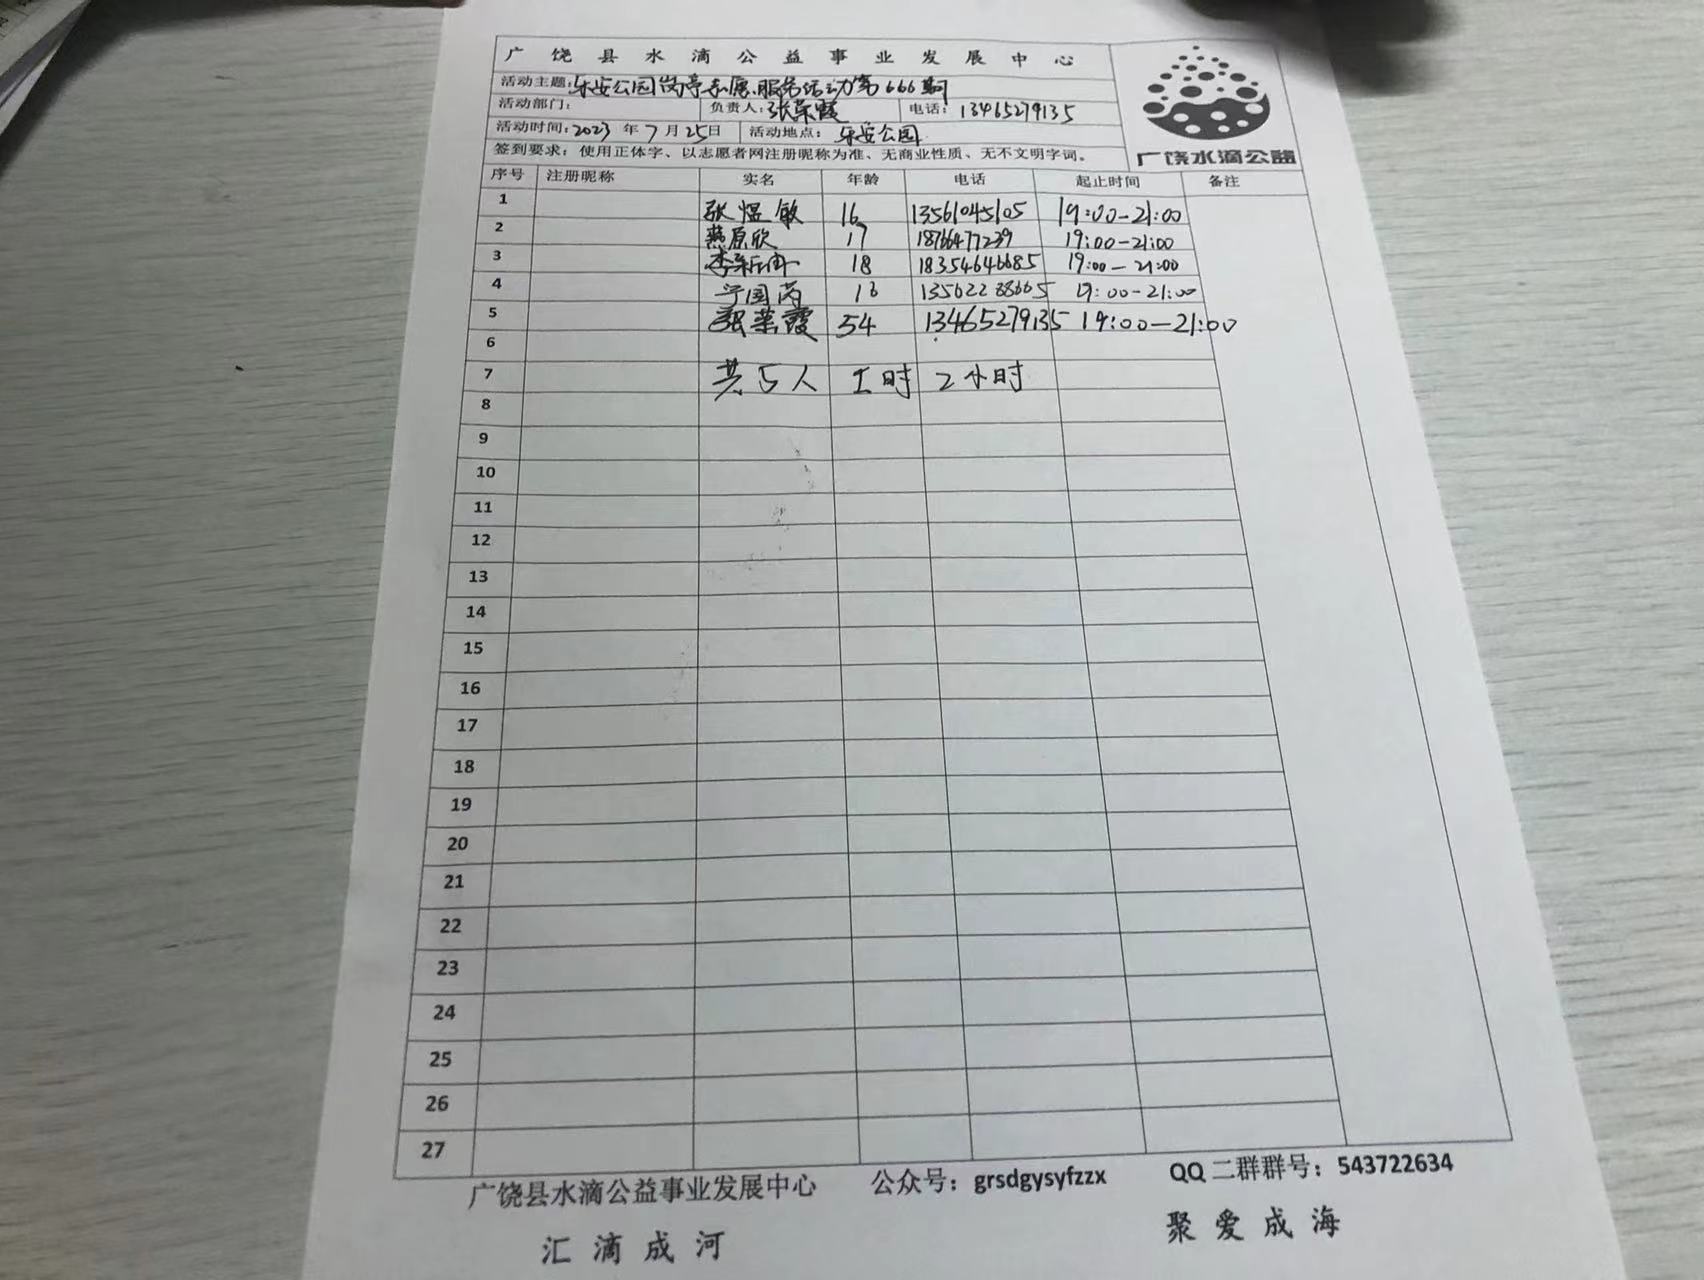 广饶县水滴公益事业发展中心
活动主题：乐安公园岗亭志愿服务活动第666期
活动部门： 负责人：张荣霞 电话：13465279135
活动时间：2023年7月25日 活动地点：乐安公园
签到要求：使用正体字、以志愿者网注册昵称为准、无商业性质、无不文明字词。
广饶水滴公益
序号 注册昵称 实名 年龄 电话 起止时间 备注
1 张煜敏 16 13561045105 19:00-21:00
2 燕原欣 17 18766477239 19:00-21:00
3 李 18 18354646685 19:00-21:00
4 宁国芮 16 13562288665 19:00-21:00
5 张荣霞 54 13465279135 19:00-21:00
6
7 共5人 工时 2小时
8
9
10
11
12
13
14
15
16
17
18
19
20
21
22
23
24
25
26
27
广饶县水滴公益事业发展中心 公众号：grsdgysyfzzx QQ二群群号：543722634
汇滴成河 聚爱成海